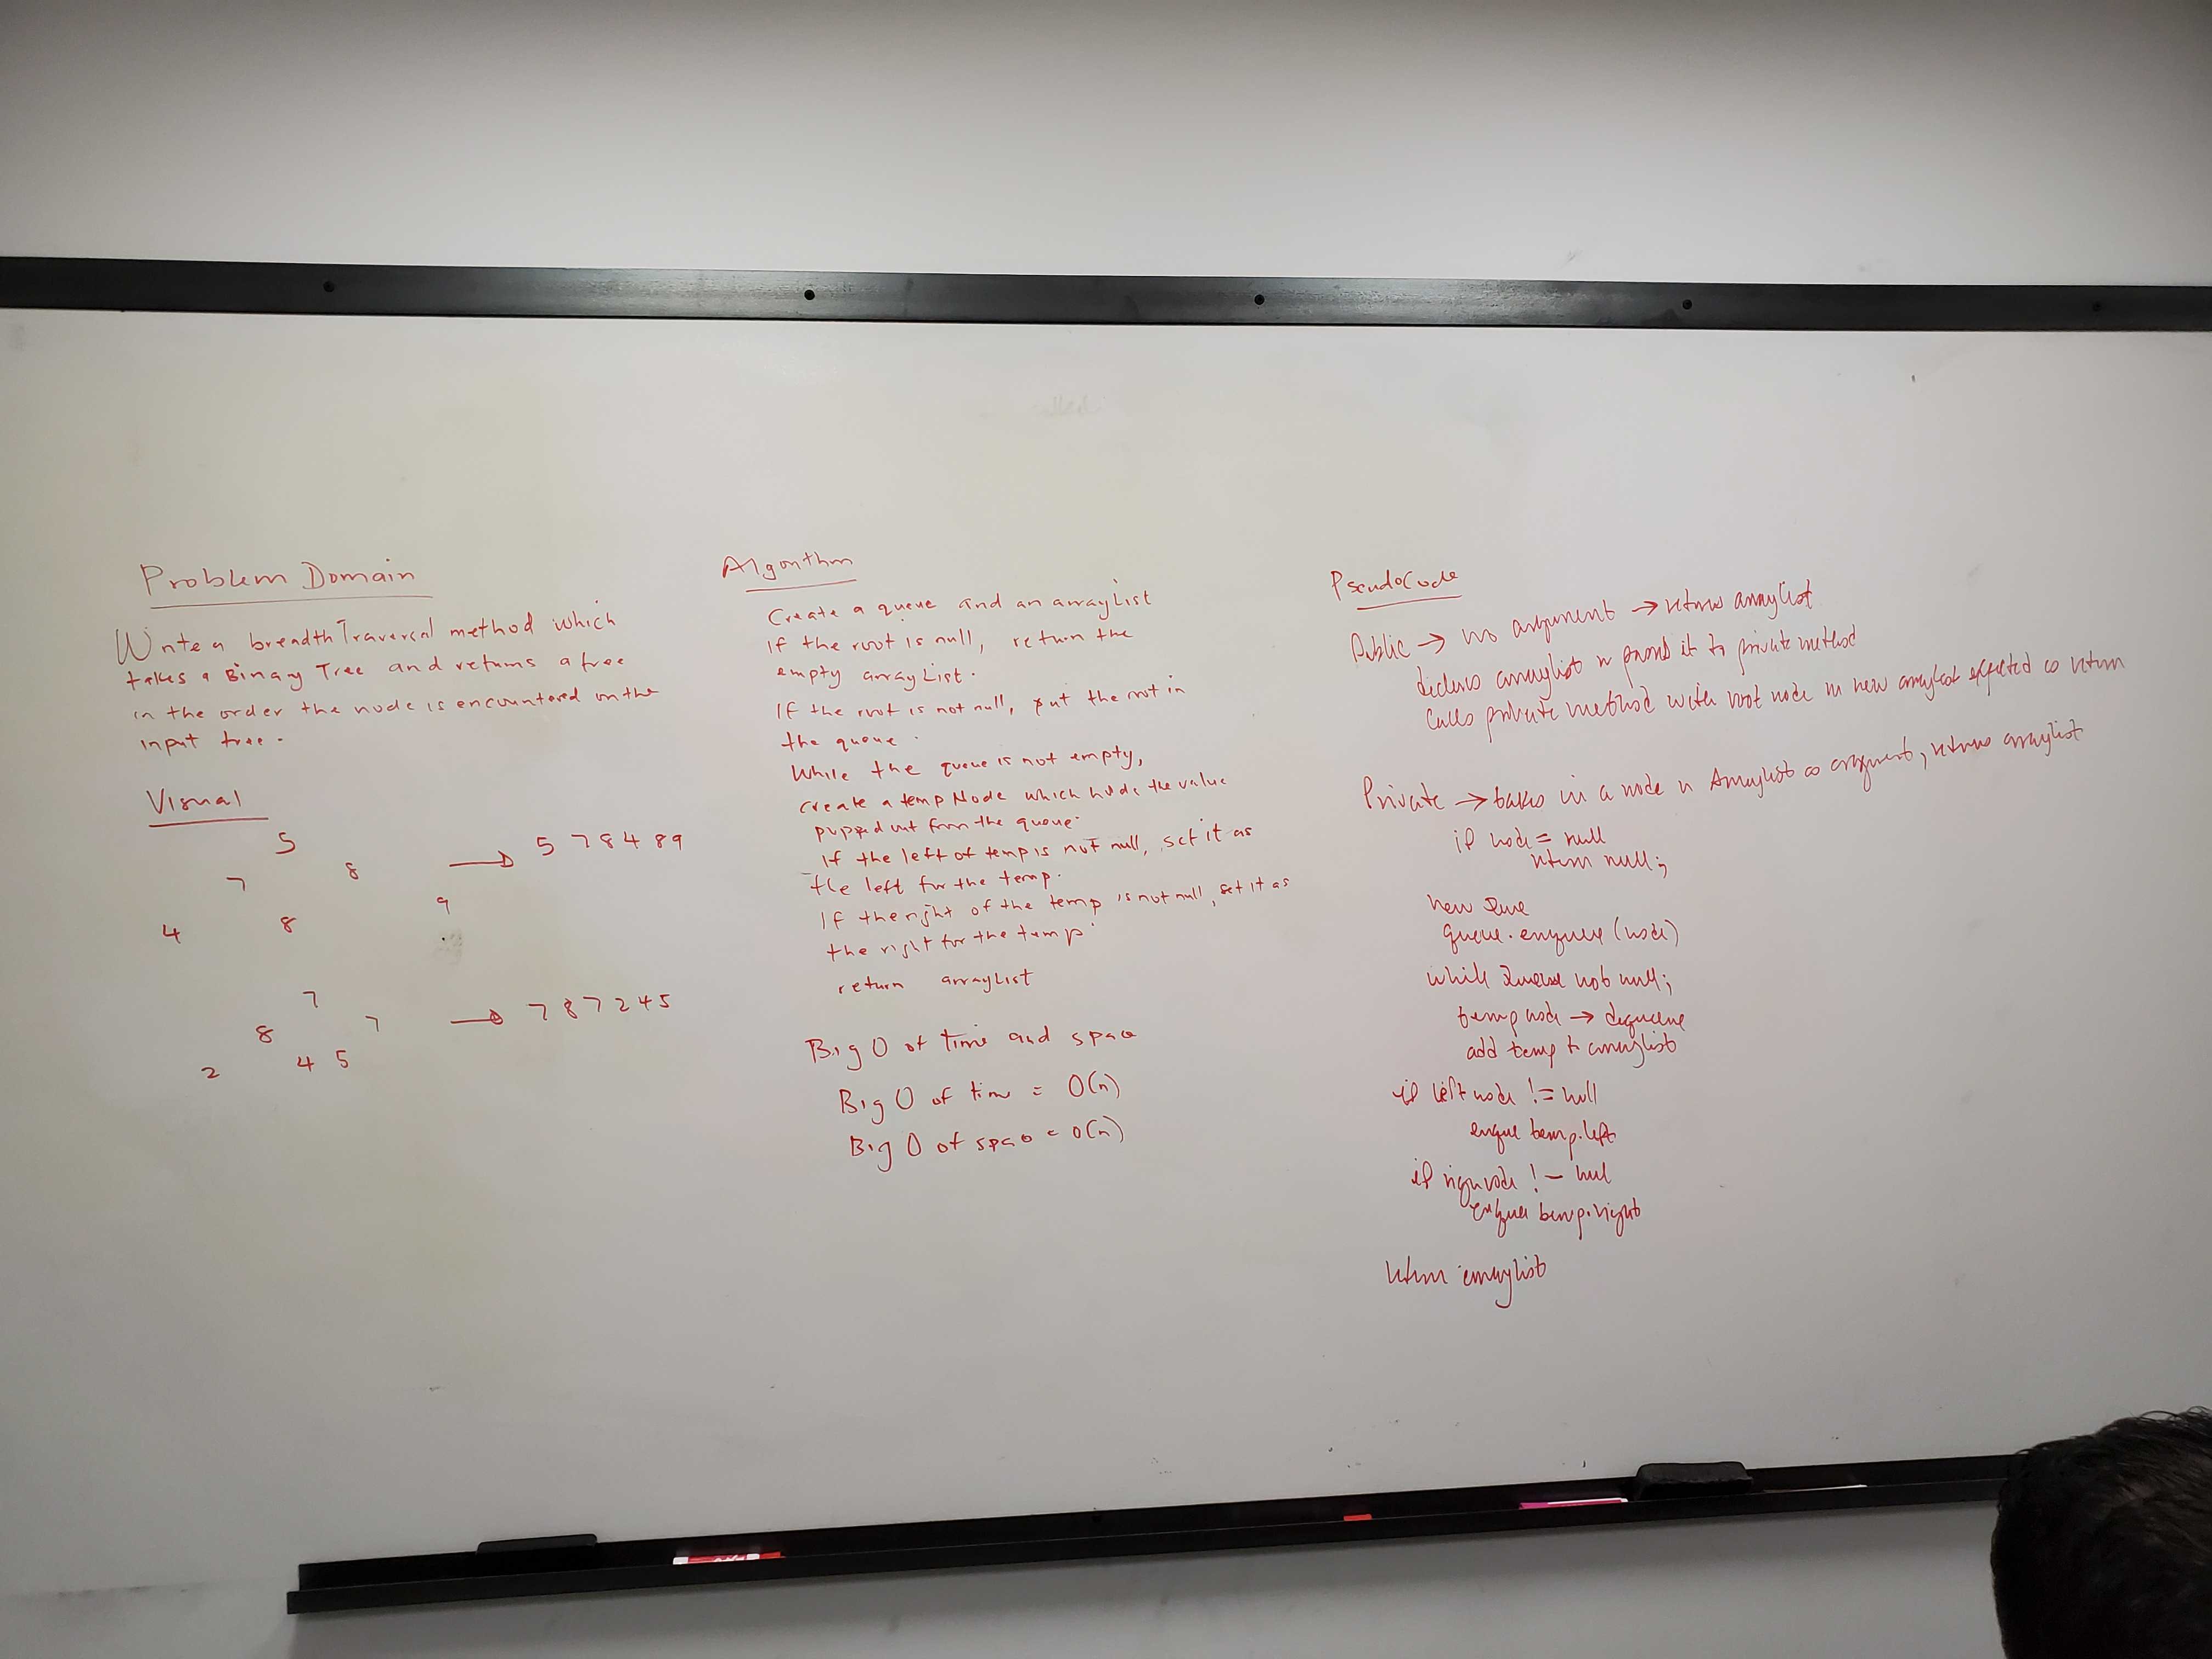 Problem Domain
Write a breadthTraversal method which
takes a Binary Tree and returns a tree
in the order the node is encountered in the
input tree.
Visual
5
7 8 → 5 7 8 4 8 9
4 8 9
7
8 7 → 7 8 7 2 4 5
2 4 5
Algorithm
Create a queue and an arrayList
If the root is null, return the
empty arrayList.
If the root is not null, put the root in
the queue.
While the queue is not empty,
create a temp Node which holds the value
popped out from the queue.
If the left of temp is not null, set it as
the left for the temp.
If the right of the temp is not null, set it as
the right for the temp.
return arrayList
Big O of time and space
Big O of time = O(n)
Big O of space = O(n)
PseudoCode
Public → no argument → returns arraylist
declares arraylist n it to private method
calls private method with root node n new arraylist expected as return
Private → takes in a node n Arraylist as argument, returns arraylist
if node = null
return null;
new Queue
queue.enqueue(node)
while Queue not null;
temp node → dequeue
add temp to arraylist
if left node != null
enque temp.left
if right node != null
enque temp.right
return arraylist